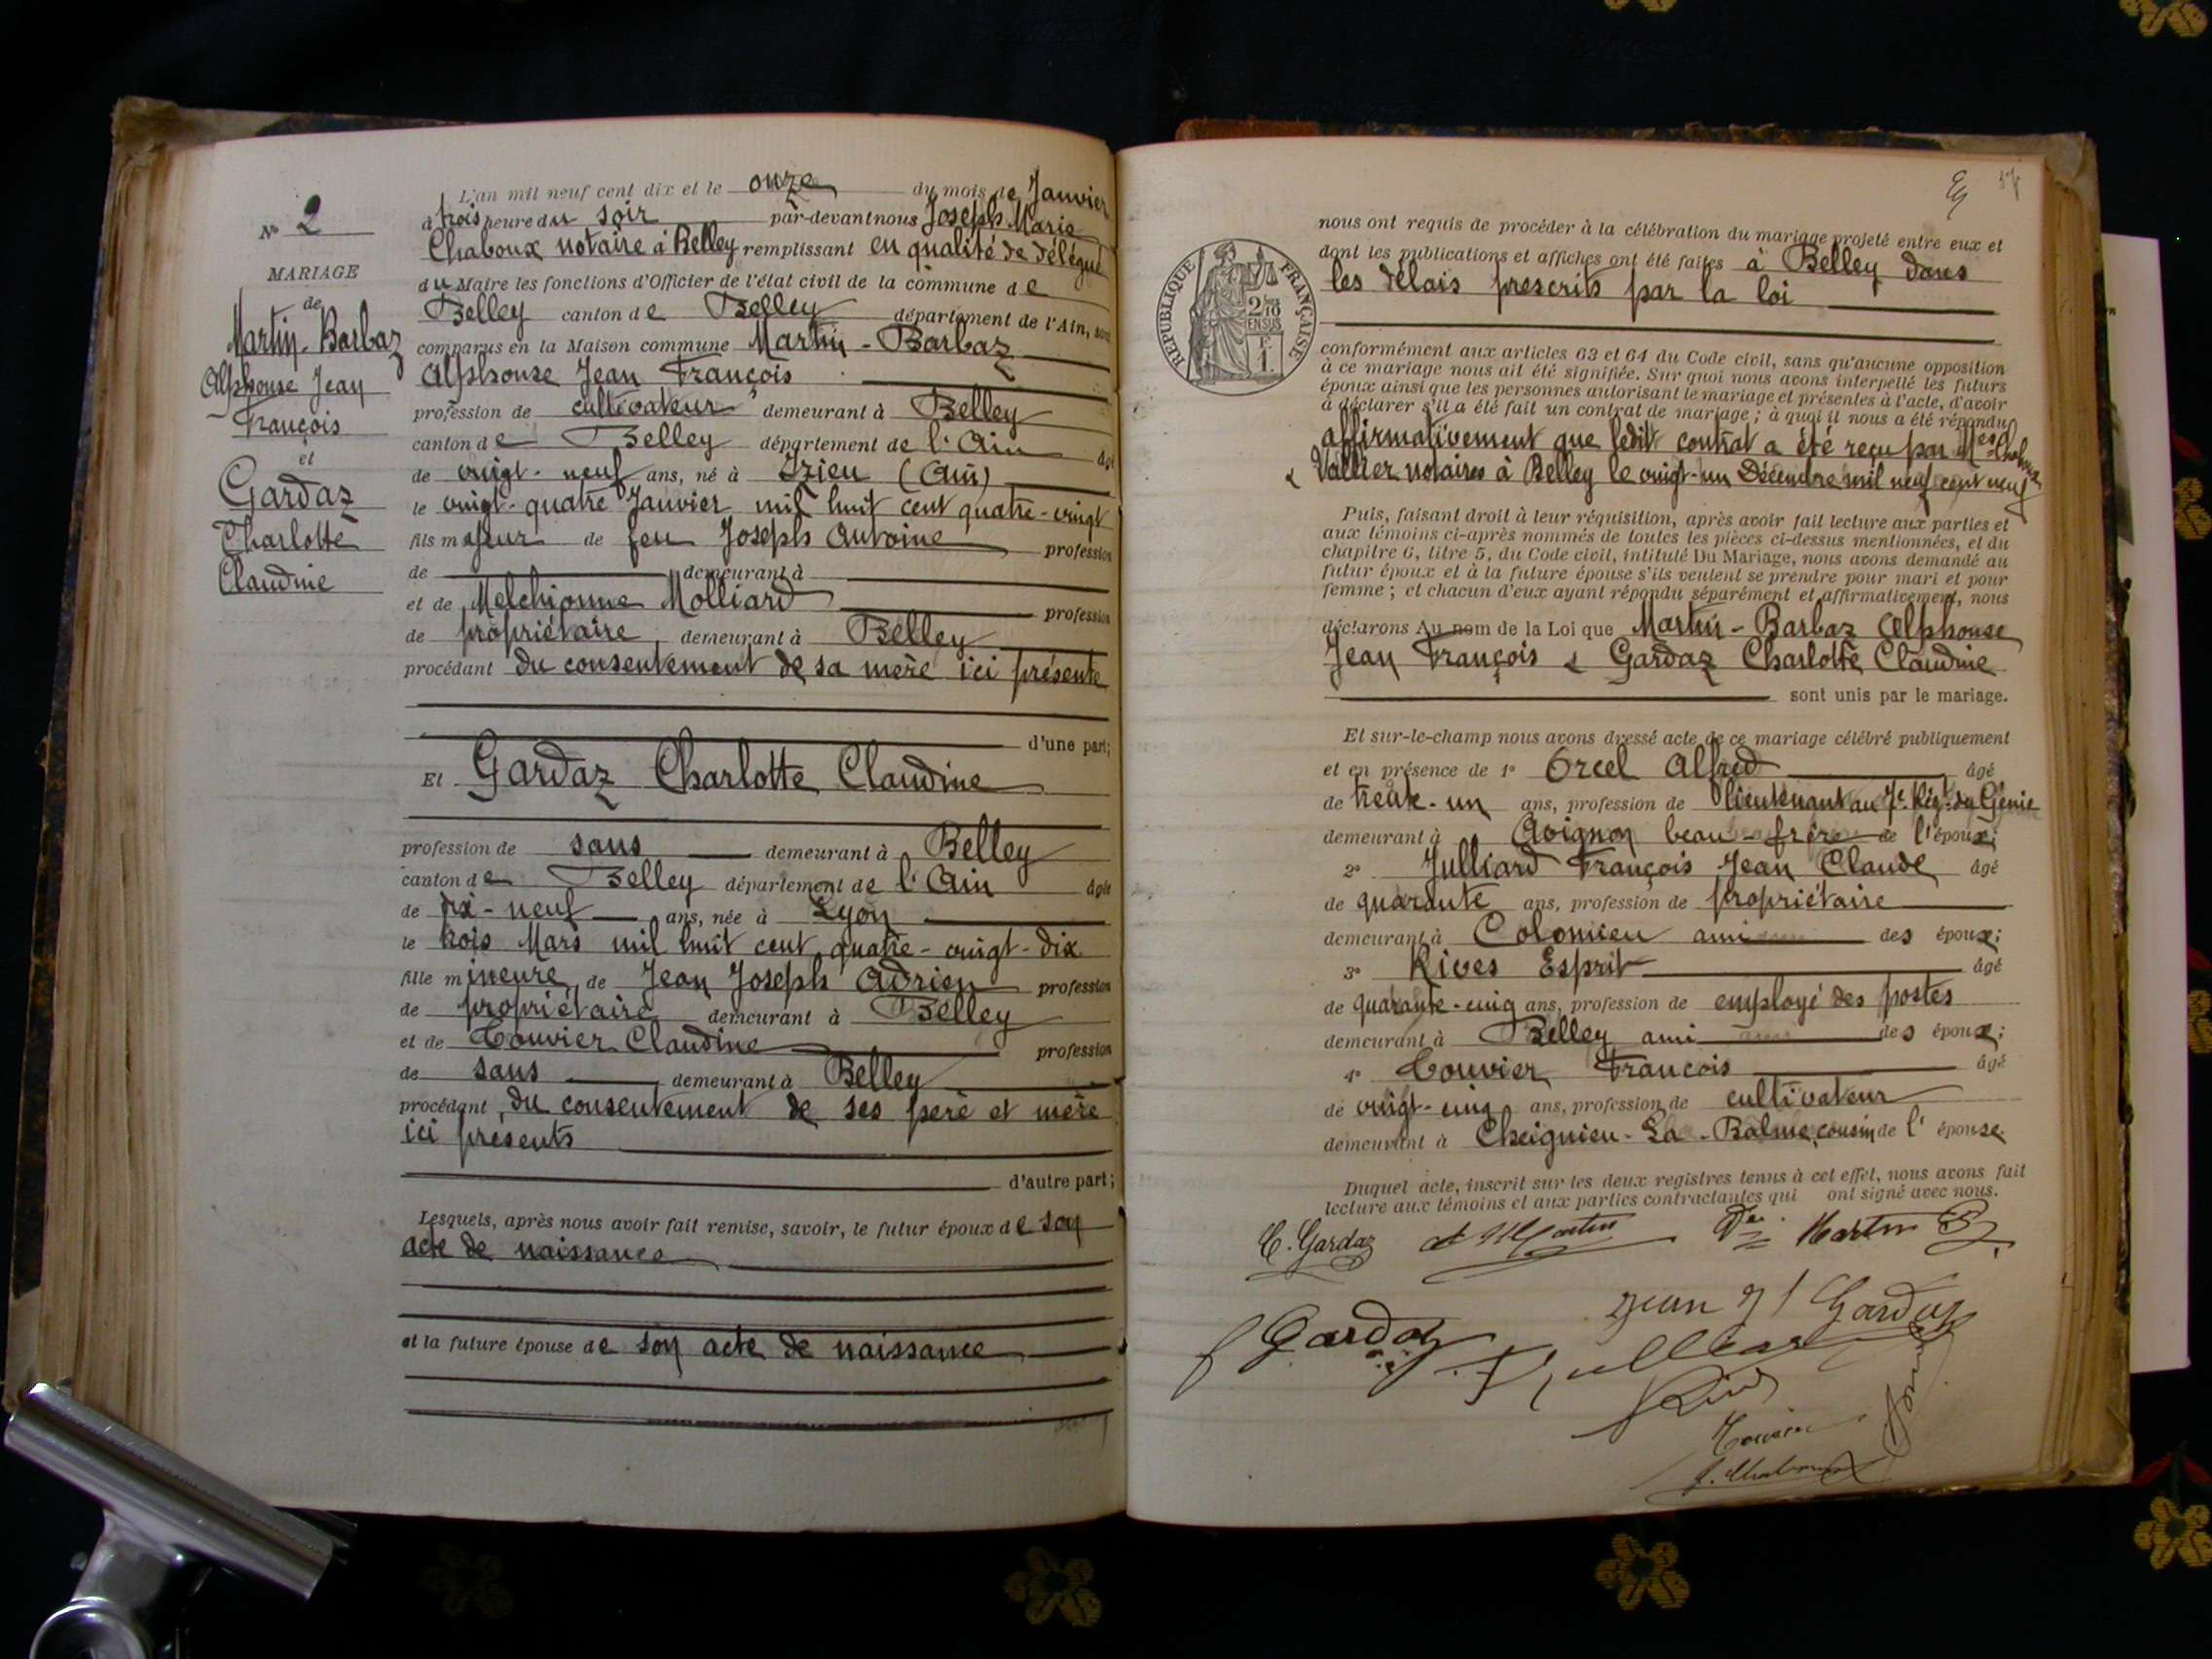 N° 2
MARIAGE
de
Martin-Barbaz
Alphonse Jean
François
et
Gardaz
Charlotte
Claudine
L'an mil neuf cent dix et le onze du mois de Janvier
à trois heure du soir par-devant nous Joseph Marie
Chaboux notaire à Belley remplissant en qualité de délégué
du Maire les fonctions d'Officier de l'état civil de la commune de
Belley canton de Belley département de l'Ain, sont
comparus en la Maison commune Martin-Barbaz
Alphonse Jean François
profession de cultivateur demeurant à Belley
canton de Belley département de l'Ain âgé
de vingt-neuf ans, né à Izieu (Ain)
le vingt-quatre Janvier mil huit cent quatre-vingt
fils majeur de feu Joseph Antoine profession
de demeurant à
et de Melchionne Molliard profession
de propriétaire demeurant à Belley
procédant du consentement de sa mère ici présente
d'une part;
Et Gardaz Charlotte Claudine
profession de sans demeurant à Belley
canton de Belley département de l'Ain âgée
de dix-neuf ans, née à Lyon
le trois Mars mil huit cent quatre-vingt-dix
fille mineure de Jean Joseph Adrien profession
de propriétaire demeurant à Belley
et de Touvier Claudine profession
de sans demeurant à Belley
procédant du consentement de ses père et mère
ici présents
d'autre part;
Lesquels, après nous avoir fait remise, savoir, le futur époux de son
acte de naissance
et la future épouse de son acte de naissance
RÉPUBLIQUE FRANÇAISE
2/10
EN SUS
F.
1.
nous ont requis de procéder à la célébration du mariage projeté entre eux et
dont les publications et affiches ont été faites à Belley dans
les délais prescrits par la loi
conformément aux articles 63 et 64 du Code civil, sans qu'aucune opposition
à ce mariage nous ait été signifiée. Sur quoi nous avons interpellé les futurs
époux ainsi que les personnes autorisant le mariage et présentes à l'acte, d'avoir
à déclarer s'il a été fait un contrat de mariage; à quoi il nous a été répondu
affirmativement que ledit contrat a été reçu par Mes Chaboux
& Vallier notaires à Belley le vingt-un Décembre mil neuf cent neuf
Puis, faisant droit à leur réquisition, après avoir fait lecture aux parties et
aux témoins ci-après nommés de toutes les pièces ci-dessus mentionnées, et du
chapitre 6, titre 5, du Code civil, intitulé Du Mariage, nous avons demandé au
futur époux et à la future épouse s'ils veulent se prendre pour mari et pour
femme; et chacun d'eux ayant répondu séparément et affirmativement, nous
déclarons Au nom de la Loi que Martin-Barbaz Alphonse
Jean François & Gardaz Charlotte Claudine
sont unis par le mariage.
Et sur-le-champ nous avons dressé acte de ce mariage célébré publiquement
et en présence de 1° Orcel Alfred âgé
de trente-un ans, profession de lieutenant au 7e Régt du Génie
demeurant à Avignon beau-frère de l'époux;
2° Julliard François Jean Claude âgé
de quarante ans, profession de propriétaire
demeurant à Colomieu ami des époux;
3° Rives Esprit âgé
de quarante-cinq ans, profession de employé des postes
demeurant à Belley ami des époux;
4° Touvier François âgé
de vingt-cinq ans, profession de cultivateur
demeurant à Cheignieu-La-Balme, cousin de l'épouse.
Duquel acte, inscrit sur les deux registres tenus à cet effet, nous avons fait
lecture aux témoins et aux parties contractantes qui ont signé avec nous.
C. Gardaz Martin Ve Martin B
Gardaz Jean Gardaz
Touvier